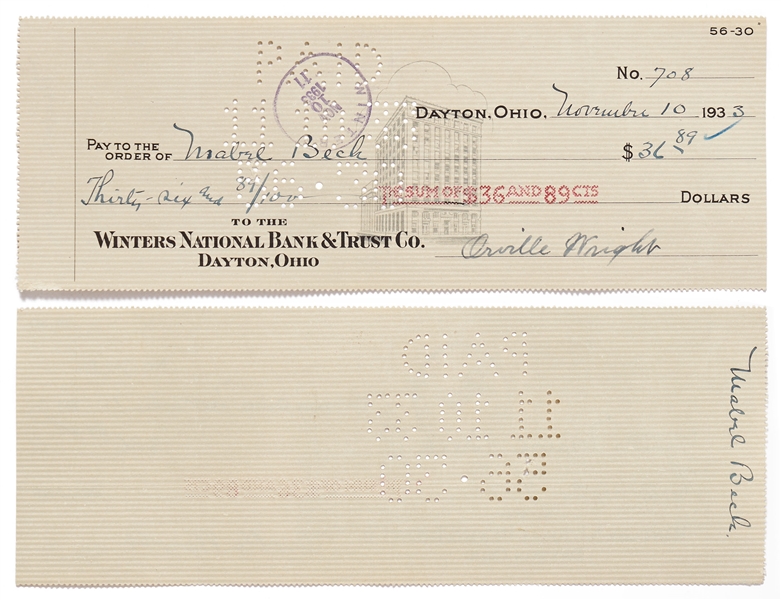 56-30
No. 708
DAYTON, OHIO, November 10 1933
PAY TO THE ORDER OF Mabel Beck $ 36 89
Thirty-six and 89/100 THE SUM OF $36 AND 89 CTS DOLLARS
TO THE
WINTERS NATIONAL BANK & TRUST CO.
DAYTON, OHIO
Orville Wright
PAID
PAID
56-30
Mabel Beck.